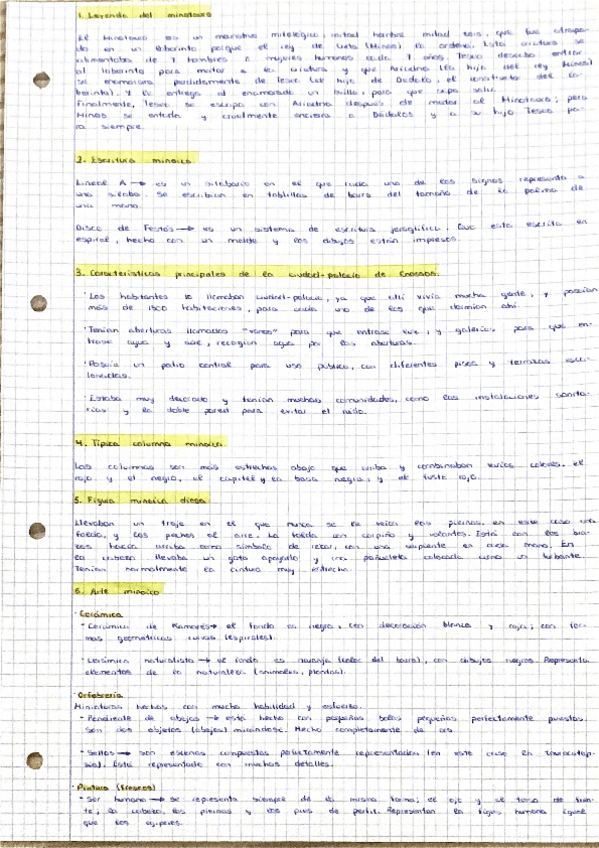 1. Leyenda del minotauro
El Minotauro es un monstruo mitológico, mitad hombre mitad toro, que fue atrapa-
do en un laberinto porque el rey de Creta (Minos) lo ordenó. Esta criatura se
alimentaba de 7 hombres y mujeres humanos cada 9 años. Teseo decidió entrar
al laberinto para matar a la criatura y que Ariadna (la hija del rey Minos)
se enamorara perdidamente de Teseo. La hija de Dédalo, el constructor del la-
berinto), y le entrega al enamorado un ovillo, para que sepa salir.
Finalmente, Teseo se escapa con Ariadna después de matar al Minotauro; pero
Minos se enfada y cruelmente encierra a Dédalos y a su hijo Teseo pa-
ra siempre.
2. Escritura minoica
Lineal A → es un silabario en el que cada uno de los signos representa a
una sílaba. Se escribían en tablillas de barro del tamaño de la palma de
una mano.
Disco de Festos → es un sistema de escritura jeroglífica. Que está escrito en
espiral, hecho con un molde y los dibujos están impresos.
3. Características principales de la ciudad-palacio de Cnossos.
· Los habitantes lo llamaban ciudad-palacio, ya que allí vivía mucha gente, y poseían
más de 1500 habitaciones, para cada uno de los que dormían ahí.
· Tenían aberturas llamadas "vanos" para que entrase luz, y galerías para que en-
trase agua y aire, recogían agua por las aberturas.
· Poseía un patio central para uso público, con diferentes pisos y terrazas esca-
lonadas.
· Estaba muy decorado y tenían muchas comunidades, como las instalaciones sanita-
rias y la doble pared para evitar el ruido.
4. Típica columna minoica
Las columnas son más estrechas abajo que arriba y combinaban varios colores, el
rojo y el negro, el capitel y la basa negra, y el fuste rojo.
5. Figura minoica diosa
Llevaban un traje en el que nunca se le veían las piernas, en este caso una
falda, y los pechos al aire. La falda con corpiño y volantes. Está con los bra-
zos hacia arriba como símbolo de rezar, con una serpiente en cada mano. En
la cabeza llevaba un gato apoyado y una pañoleta colocada como un turbante.
Tenían normalmente la cintura muy estrecha.
6. Arte minoico
· Cerámica
· Cerámica de Kamares → el fondo es negro, con decoración blanca y roja; con for-
mas geométricas curvas (espirales).
· Cerámica naturalista → el fondo es naranja (color del barro), con dibujos negros. Representa
elementos de la naturaleza (animales, plantas).
· Orfebrería
Miniaturas hechas con mucha habilidad y esfuerzo.
· Pendiente de abejas → está hecho con pequeñas bolas pequeñas perfectamente puestas.
Son dos objetos (abejas) mirándose. Hecho completamente de oro.
· Sellos → son escenas compuestas perfectamente representadas (en este caso en
Está representado con muchos detalles.
· Pintura (frescos)
· Ser humano → se representa siempre de la misma forma; el ojo y el torso de fren-
te, la cabeza, las piernas y los pies de perfil. Representan la figura humana igual
que los egipcios.